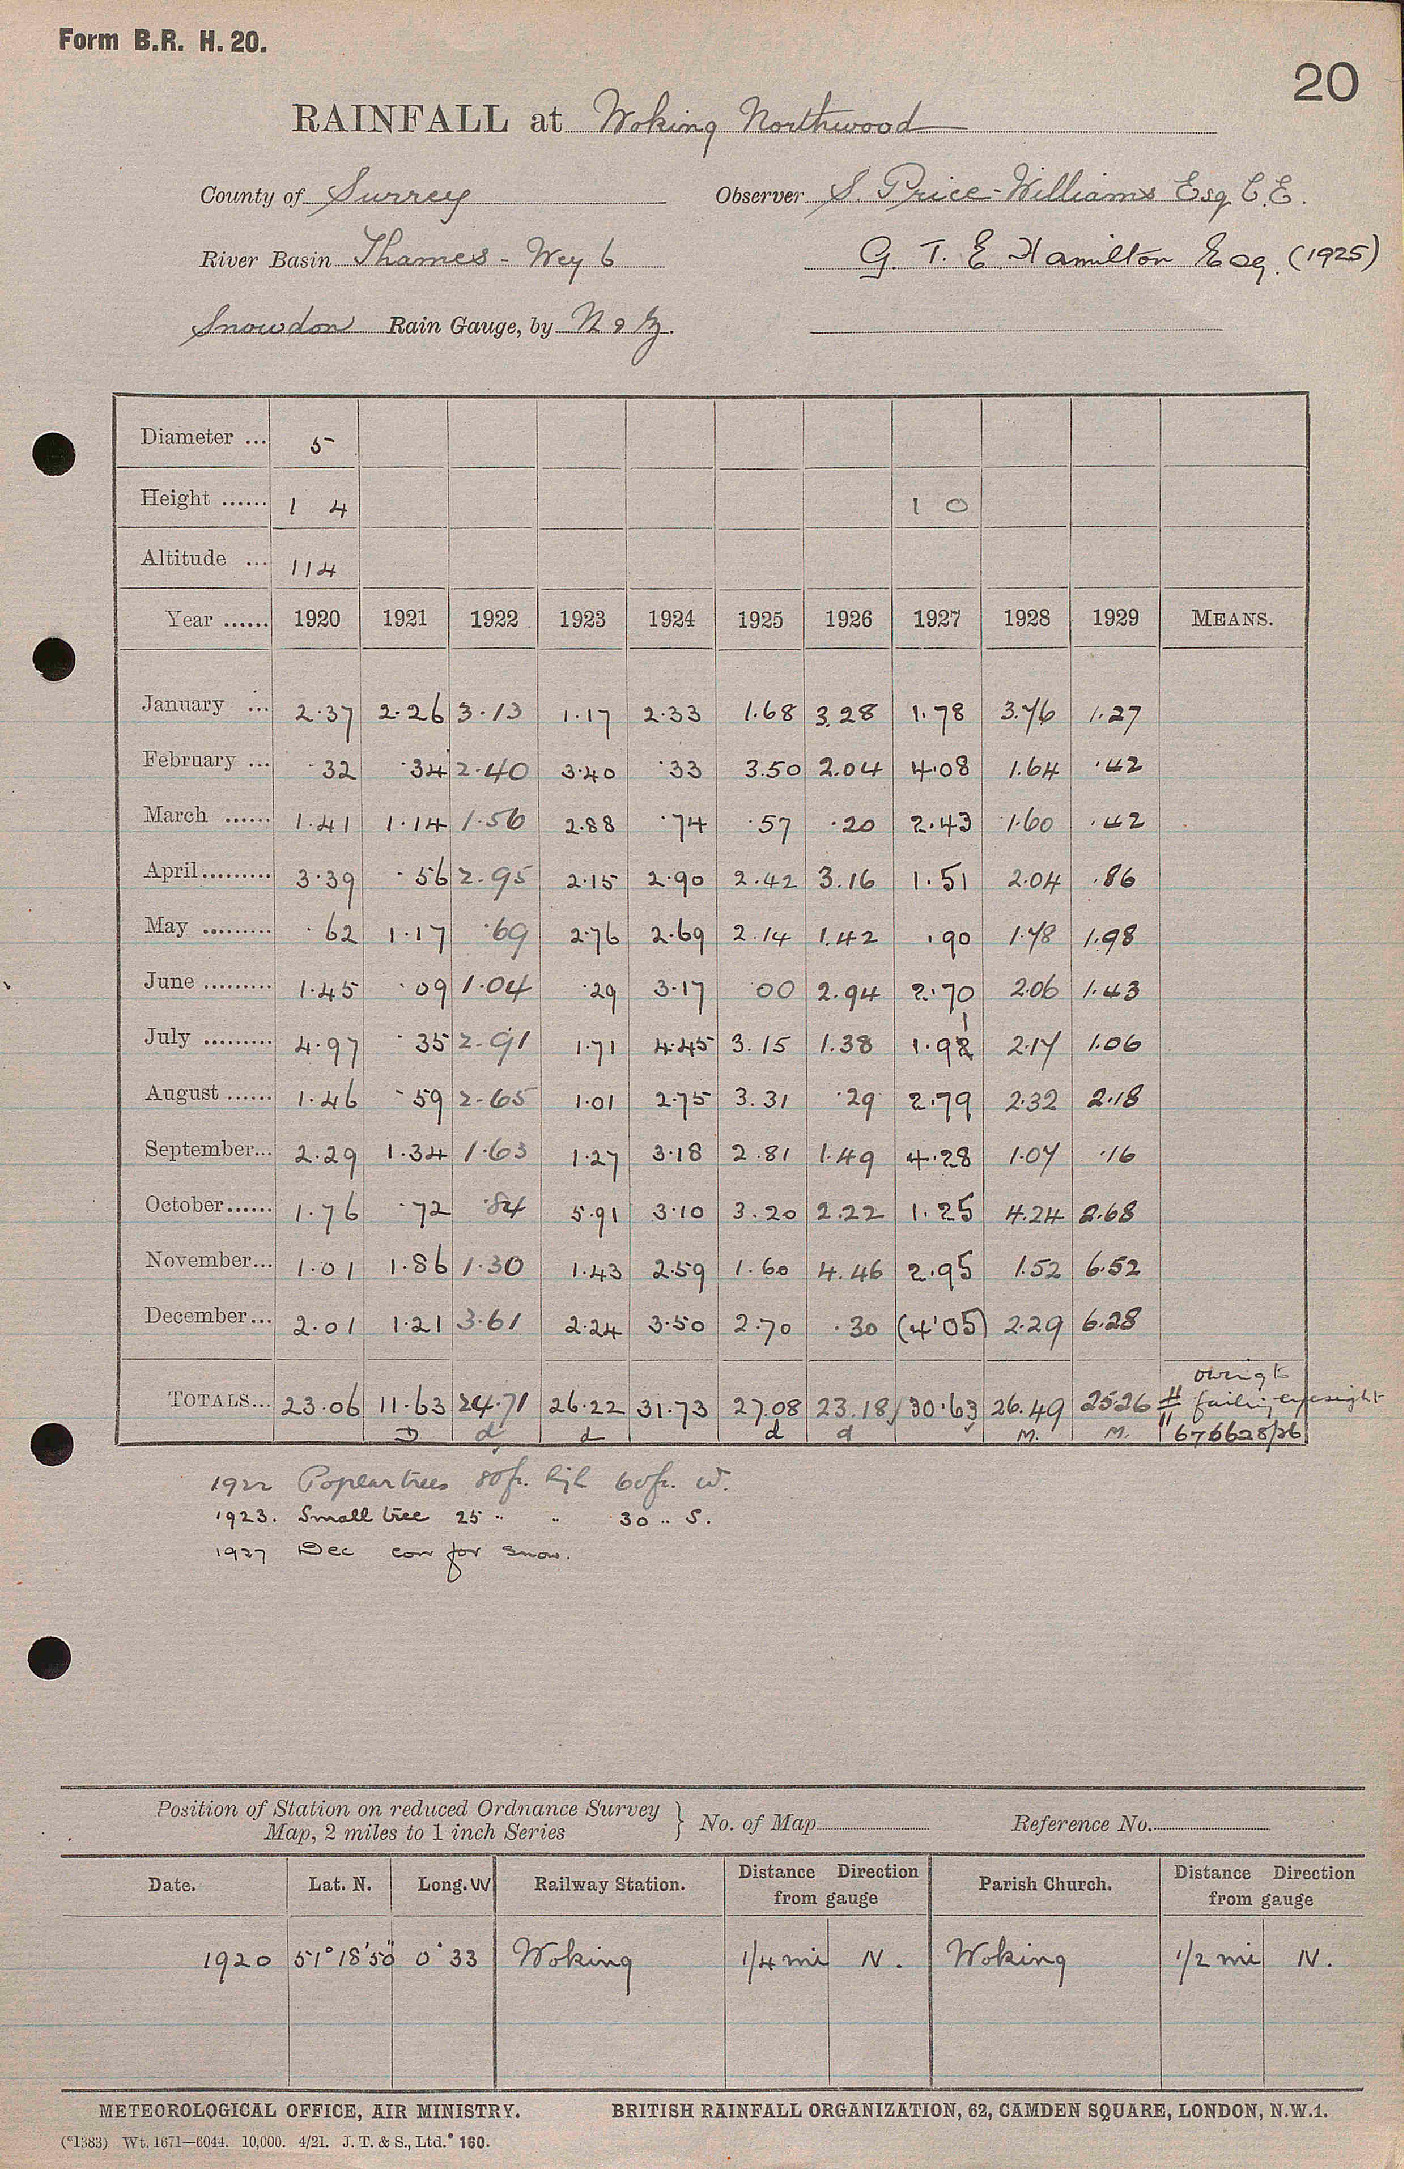 Form B.R. H. 20.
20
RAINFALL at Woking Northwood
County of Surrey Observer S. Price-Williams Esq C.E.
River Basin Thames - Wey 6 G. T. E Hamilton Esq. (1925)
Snowdon Rain Gauge, by N & Z.
Diameter ... 5
Height ...... 1 4 1 0
Altitude ... 114
Year ...... 1920 1921 1922 1923 1924 1925 1926 1927 1928 1929 MEANS.
January ... 2.37 2.26 3.13 1.17 2.33 1.68 3.28 1.78 3.76 1.27
February ... .32 .34 2.40 3.40 .33 3.50 2.04 4.08 1.64 .42
March ...... 1.41 1.14 1.56 2.88 .74 .57 .20 2.43 1.60 .42
April......... 3.39 .56 2.95 2.15 2.90 2.42 3.16 1.51 2.04 .86
May ......... .62 1.17 .69 2.76 2.69 2.14 1.42 .90 1.78 1.98
June ......... 1.45 .09 1.04 .29 3.17 .00 2.94 2.70 2.06 1.43
July ......... 4.97 .35 2.91 1.71 4.45 3.15 1.38 1.91 2.17 1.06
August ...... 1.46 .59 2.65 1.01 2.75 3.31 .29 2.79 2.32 2.18
September... 2.29 1.34 1.63 1.27 3.18 2.81 1.49 4.28 1.07 .16
October...... 1.76 .72 .84 5.91 3.10 3.20 2.22 1.25 4.24 2.68
November... 1.01 1.86 1.30 1.43 2.59 1.60 4.46 2.95 1.52 6.52
December... 2.01 1.21 3.61 2.24 3.50 2.70 .30 (4.05) 2.29 6.28
owing to
TOTALS... 23.06 11.63 24.71 26.22 31.73 27.08 23.18 30.63 26.49 25.26 # failing eyesight
D d d d d M. M. " 676628/26
1922 Poplar trees 80ft. high 60ft. W.
1923. Small tree 25 " " 30 " S.
1927 Dec corr for snow.
Position of Station on reduced Ordnance Survey
Map, 2 miles to 1 inch Series } No. of Map Reference No.
Date. Lat. N. Long. W Railway Station. Distance Direction from gauge Parish Church. Distance Direction from gauge
1920 51° 18' 50" 0° 33 Woking 1/4 mi N. Woking 1/2 mi N.
METEOROLOGICAL OFFICE, AIR MINISTRY. BRITISH RAINFALL ORGANIZATION, 62, CAMDEN SQUARE, LONDON, N.W.1.
(*1383) Wt. 1671—6044. 10,000. 4/21. J. T. & S., Ltd. 160.